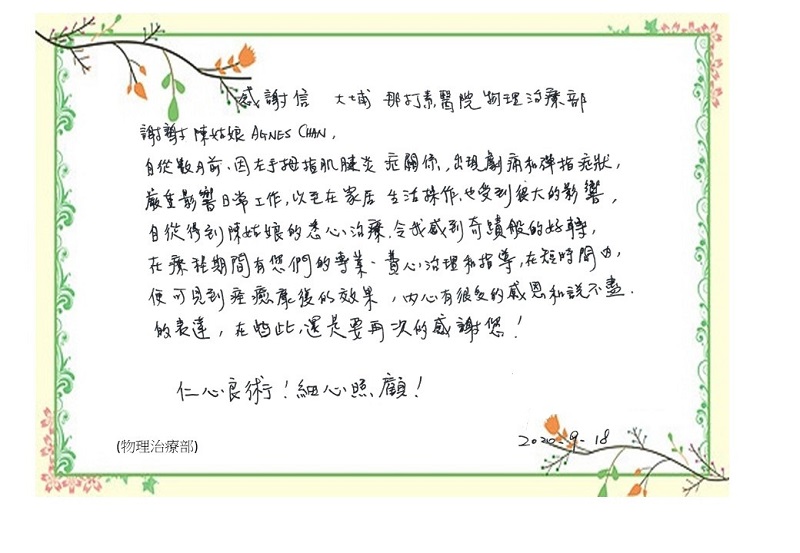 感謝信 大埔 那打素醫院物理治療部
謝謝陳姑娘 AGNES CHAN,
自從數月前,因左手拇指肌腱炎症關係,出現劇痛和彈指症狀,
嚴重影響日常工作,以至在家居生活操作,也受到很大的影響,
自從得到陳姑娘的悉心治療,令我感到奇蹟般的好轉,
在療程期間有您們的專業、費心治理和指導,在短時間內,
便可見到痊癒康復的效果,內心有很多的感恩和說不盡
的表達,在此,還是要再次的感謝您!
仁心良術!細心照顧!
(物理治療部)
2020-9-18